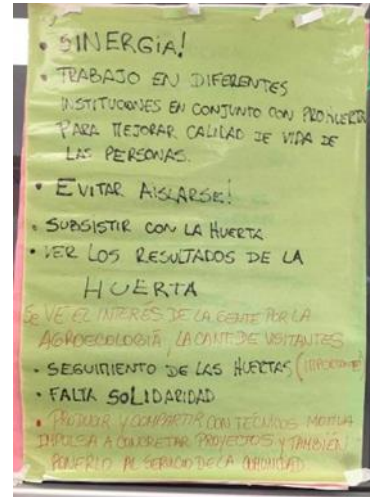 • SINERGIA!
• TRABAJO EN DIFERENTES
INSTITUCIONES EN CONJUNTO CON PROHUERTA
PARA MEJORAR CALIDAD DE VIDA DE
LAS PERSONAS.
• EVITAR AISLARSE!
• SUBSISTIR CON LA HUERTA
• VER LOS RESULTADOS DE LA
HUERTA
SE VE EL INTERÉS DE LA GENTE POR LA
AGROECOLOGÍA, LA CANT. DE VISITANTES
• SEGUIMIENTO DE LAS HUERTAS (IMPORTANTE)
• FALTA SOLIDARIDAD
• PRODUCIR Y COMPARTIR CON TÉCNICOS MOTIVA
IMPULSA A CONCRETAR PROYECTOS Y TAMBIÉN
PONERLO AL SERVICIO DE LA COMUNIDAD.